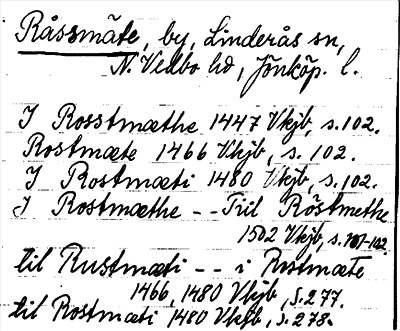 Råssmäte, by, Linderås sn,
N. Vedbo hd, Jönköp. l.
I Rosstmæthe 1447 Vkjb, s. 102.
Rostmæte 1466 Vkjb, s. 102.
I Rostmæti 1480 Vkjb, s. 102.
I Rostmæthe -- Triil Röstmethe
1502 Vkjb, s. 101-102.
til Rustmæti -- i Rostmæte
1466, 1480 Vkjb, s. 277.
til Rostmæti 1480 Vkjb, s. 278.